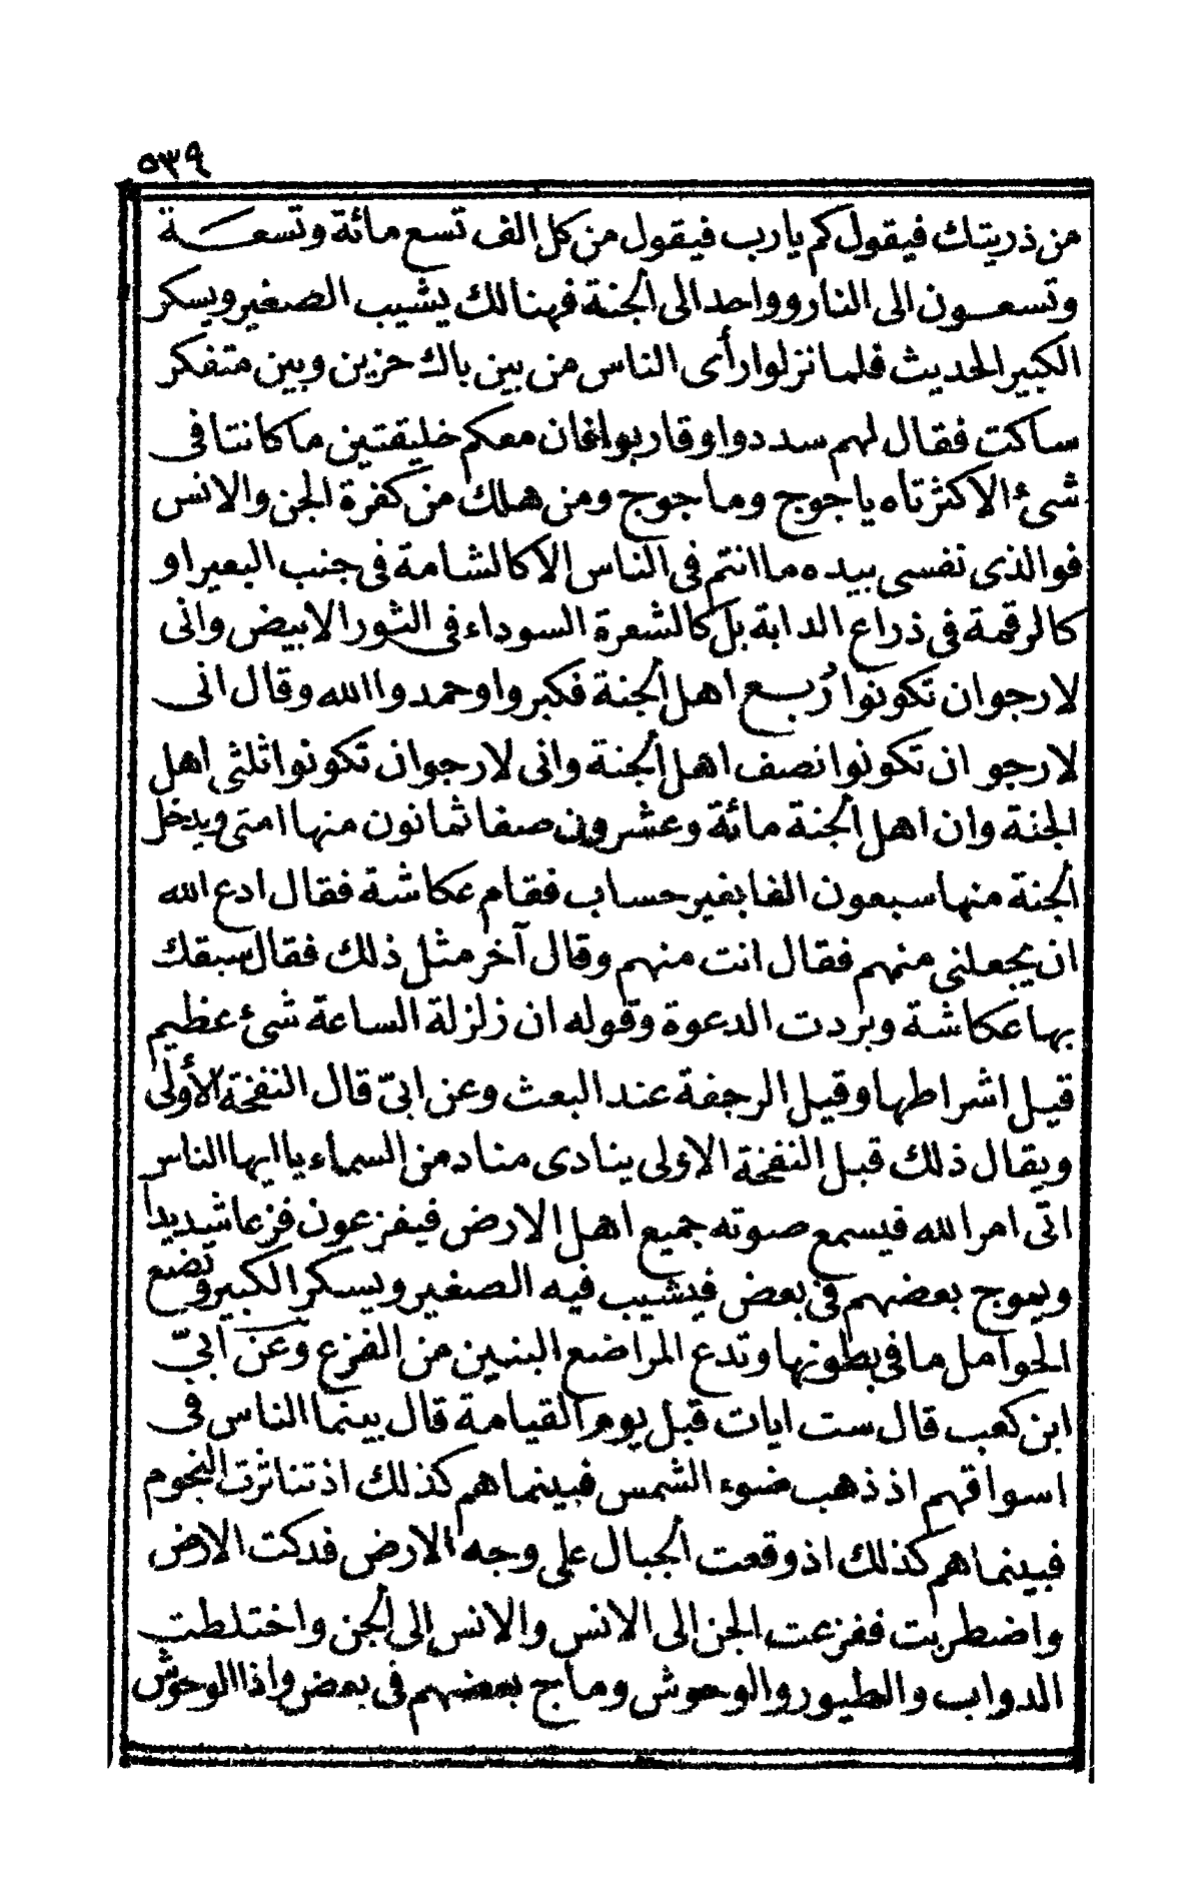 ٥٣٩
من ذريتك فيقول كم يا رب فيقول من كل الف تسع مائة وتسعة
وتسعون الى النار وواحد الى الجنة فهنالك يشيب الصغير ويسكر
الكبير الحديث فلما نزلوا رأى الناس من بين باك حزين وبين متفكر
ساكت فقال لهم سددوا وقاربوا فان معكم خليقتين ما كانتا فى
شئ الا كثرتاه ياجوج وماجوج ومن هلك من كفرة الجن والانس
فوالذى نفسى بيده ما انتم فى الناس الا كالشامة فى جنب البعير او
كالرقمة فى ذراع الدابة بل كالشعرة السوداء فى الثور الابيض وانى
لارجو ان تكونوا رُبع اهل الجنة فكبروا وحمدوا الله وقال انى
لارجو ان تكونوا نصف اهل الجنة وانى لارجو ان تكونوا ثلثى اهل
الجنة وان اهل الجنة مائة وعشرون صفا ثمانون منها امتى ويدخل
الجنة منها سبعون الفا بغير حساب فقام عكاشة فقال ادع الله
ان يجعلنى منهم فقال انت منهم وقال آخر مثل ذلك فقال سبقك
بها عكاشة وبردت الدعوة وقوله ان زلزلة الساعة شئ عظيم
قيل اشراطها وقيل الرجفة عند البعث وعن ابىّ قال النفخة الأولى
ويقال ذلك قبل النفخة الاولى ينادى مناد من السماء يا ايها الناس
اتى امر الله فيسمع صوته جميع اهل الارض فيفزعون فزعا شديدا
ويموج بعضهم فى بعض فيشيب فيه الصغير ويسكر الكبير وتضع
الحوامل ما فى بطونها وتدع المراضع البنين من الفزع وعن ابىّ
ابن كعب قال ست ايات قبل يوم القيامة قال بينما الناس فى
اسواقهم اذ ذهب ضوء الشمس فبينما هم كذلك اذ تناثرت النجوم
فبينما هم كذلك اذ وقعت الجبال على وجه الارض فدكت الارض
واضطربت ففزعت الجن الى الانس والانس الى الجن واختلطت
الدواب والطيور والوحوش وماج بعضهم فى بعض واذا الوحوش